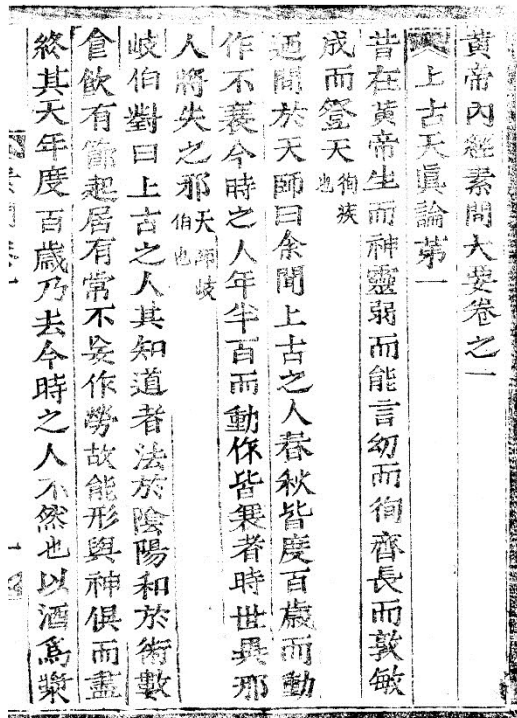 黃帝內經素問大要卷之一
上古天眞論第一
昔在黃帝生而神靈弱而能言幼而徇齊長而敦敏
成而登天徇疾也
迺問於天師曰余聞上古之人春秋皆度百歲而動
作不衰今時之人年半百而動作皆衰者時世異邪
人將失之邪天師岐伯也
岐伯對曰上古之人其知道者法於陰陽和於術數
食飮有節起居有常不妄作勞故能形與神俱而盡
終其天年度百歲乃去今時之人不然也以酒爲漿